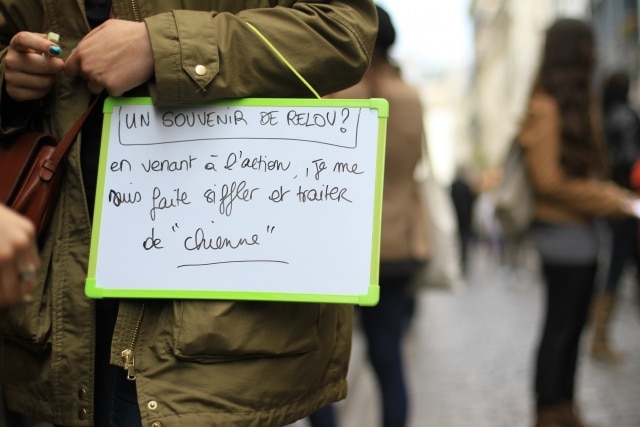 UN SOUVENIR DE RELOU?
en venant à l'action, je me
suis faite siffler et traiter
de "chienne"